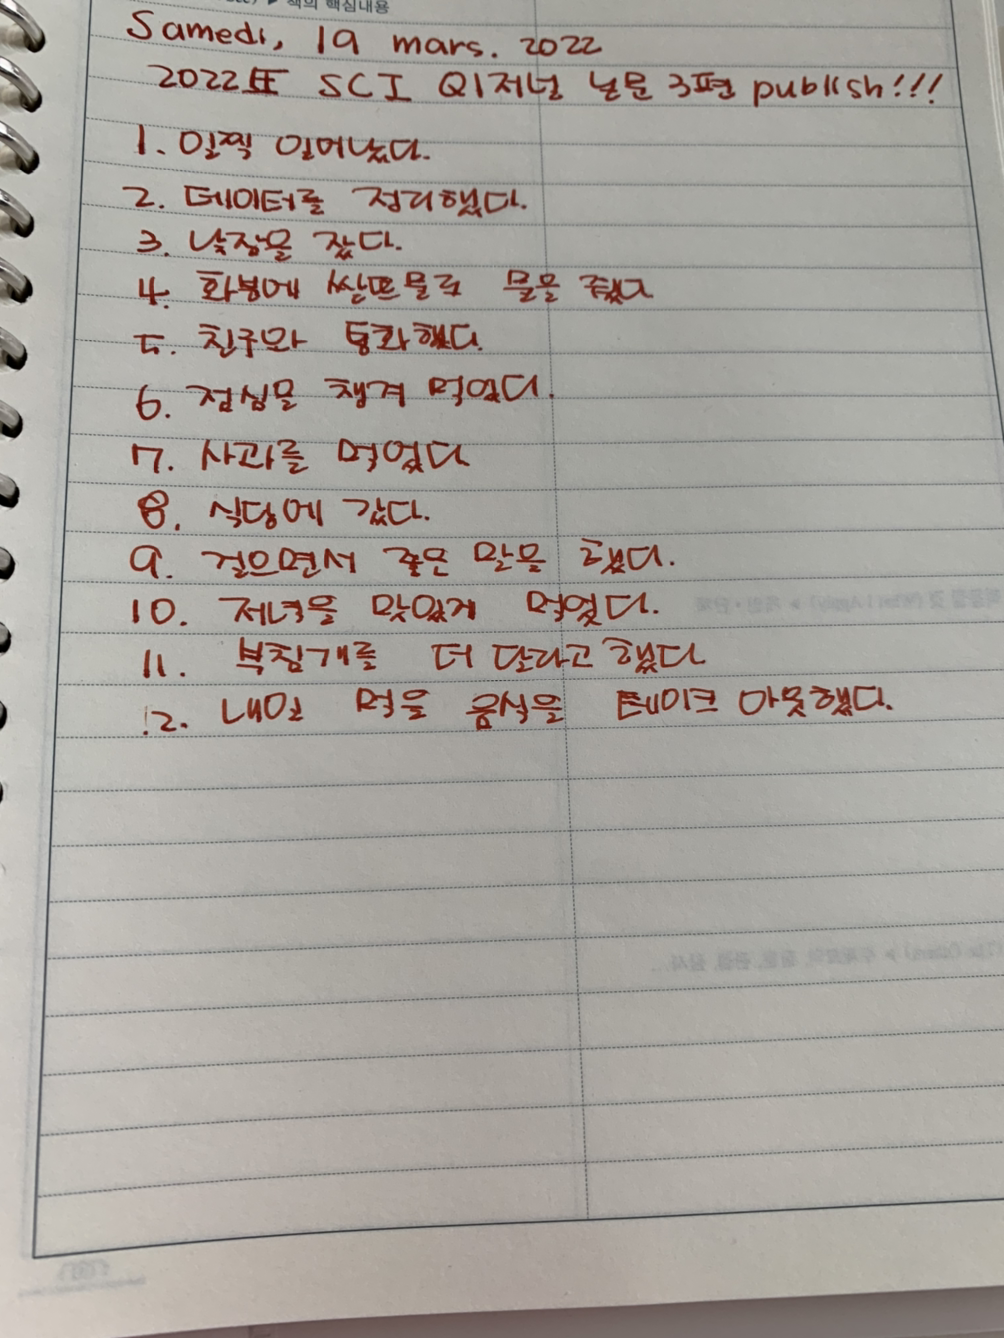 책의 핵심내용
Samedi, 19 mars. 2022
2022年 SCI Q1저널 논문 3편 publish!!!
1. 일찍 일어났다.
2. 데이터를 정리했다.
3. 낮잠을 잤다.
4. 화분에 쌀뜨물로 물을 줬다
5. 친구와 통화했다.
6. 점심을 챙겨 먹었다.
7. 사과를 먹었다
8. 식당에 갔다.
9. 걸으면서 좋은 말을 했다.
10. 저녁을 맛있게 먹었다.
11. 부침개를 더 달라고 했다
12. 내일 먹을 음식을 테이크 아웃했다.